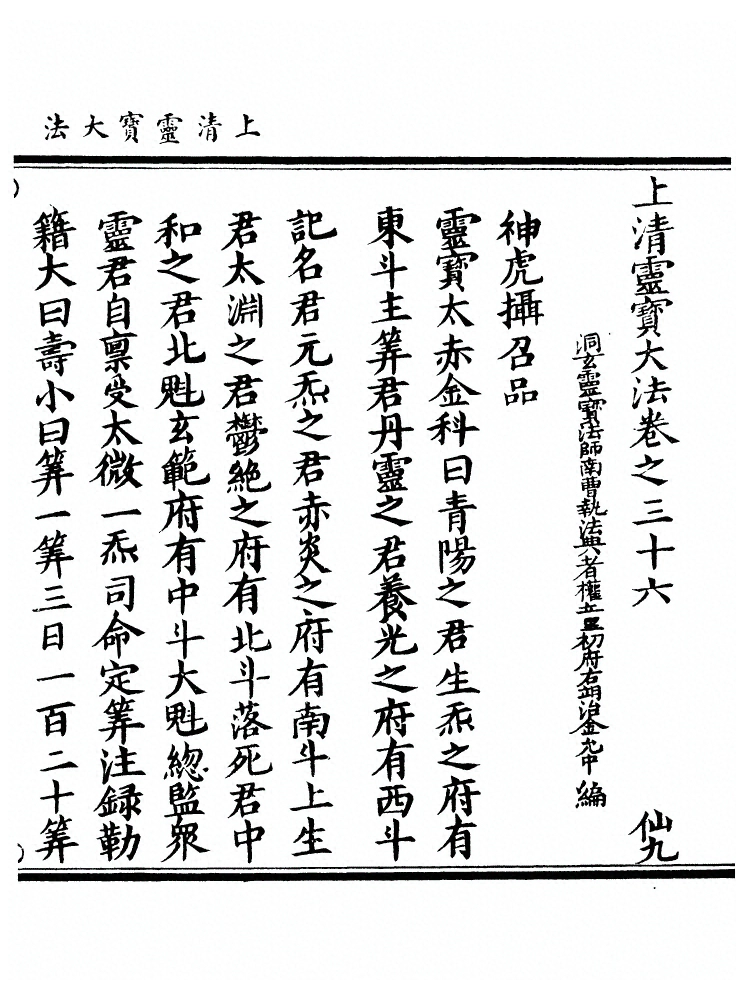 上清靈寶大法
上清靈寶大法卷之三十六 仙九
洞玄靈寶法師南曹執法典者權童初府右翊治金允中 編
神虎攝召品
靈寶太赤金科曰青陽之君生炁之府有
東斗主筭君丹靈之君養光之府有西斗
記名君元炁之君赤炎之府有南斗上生
君太淵之君鬱絶之府有北斗落死君中
和之君北魁玄範府有中斗大魁緫監衆
靈君自禀受太微一炁司命定筭注録勒
籍大曰壽小曰筭一筭三日一百二十筭